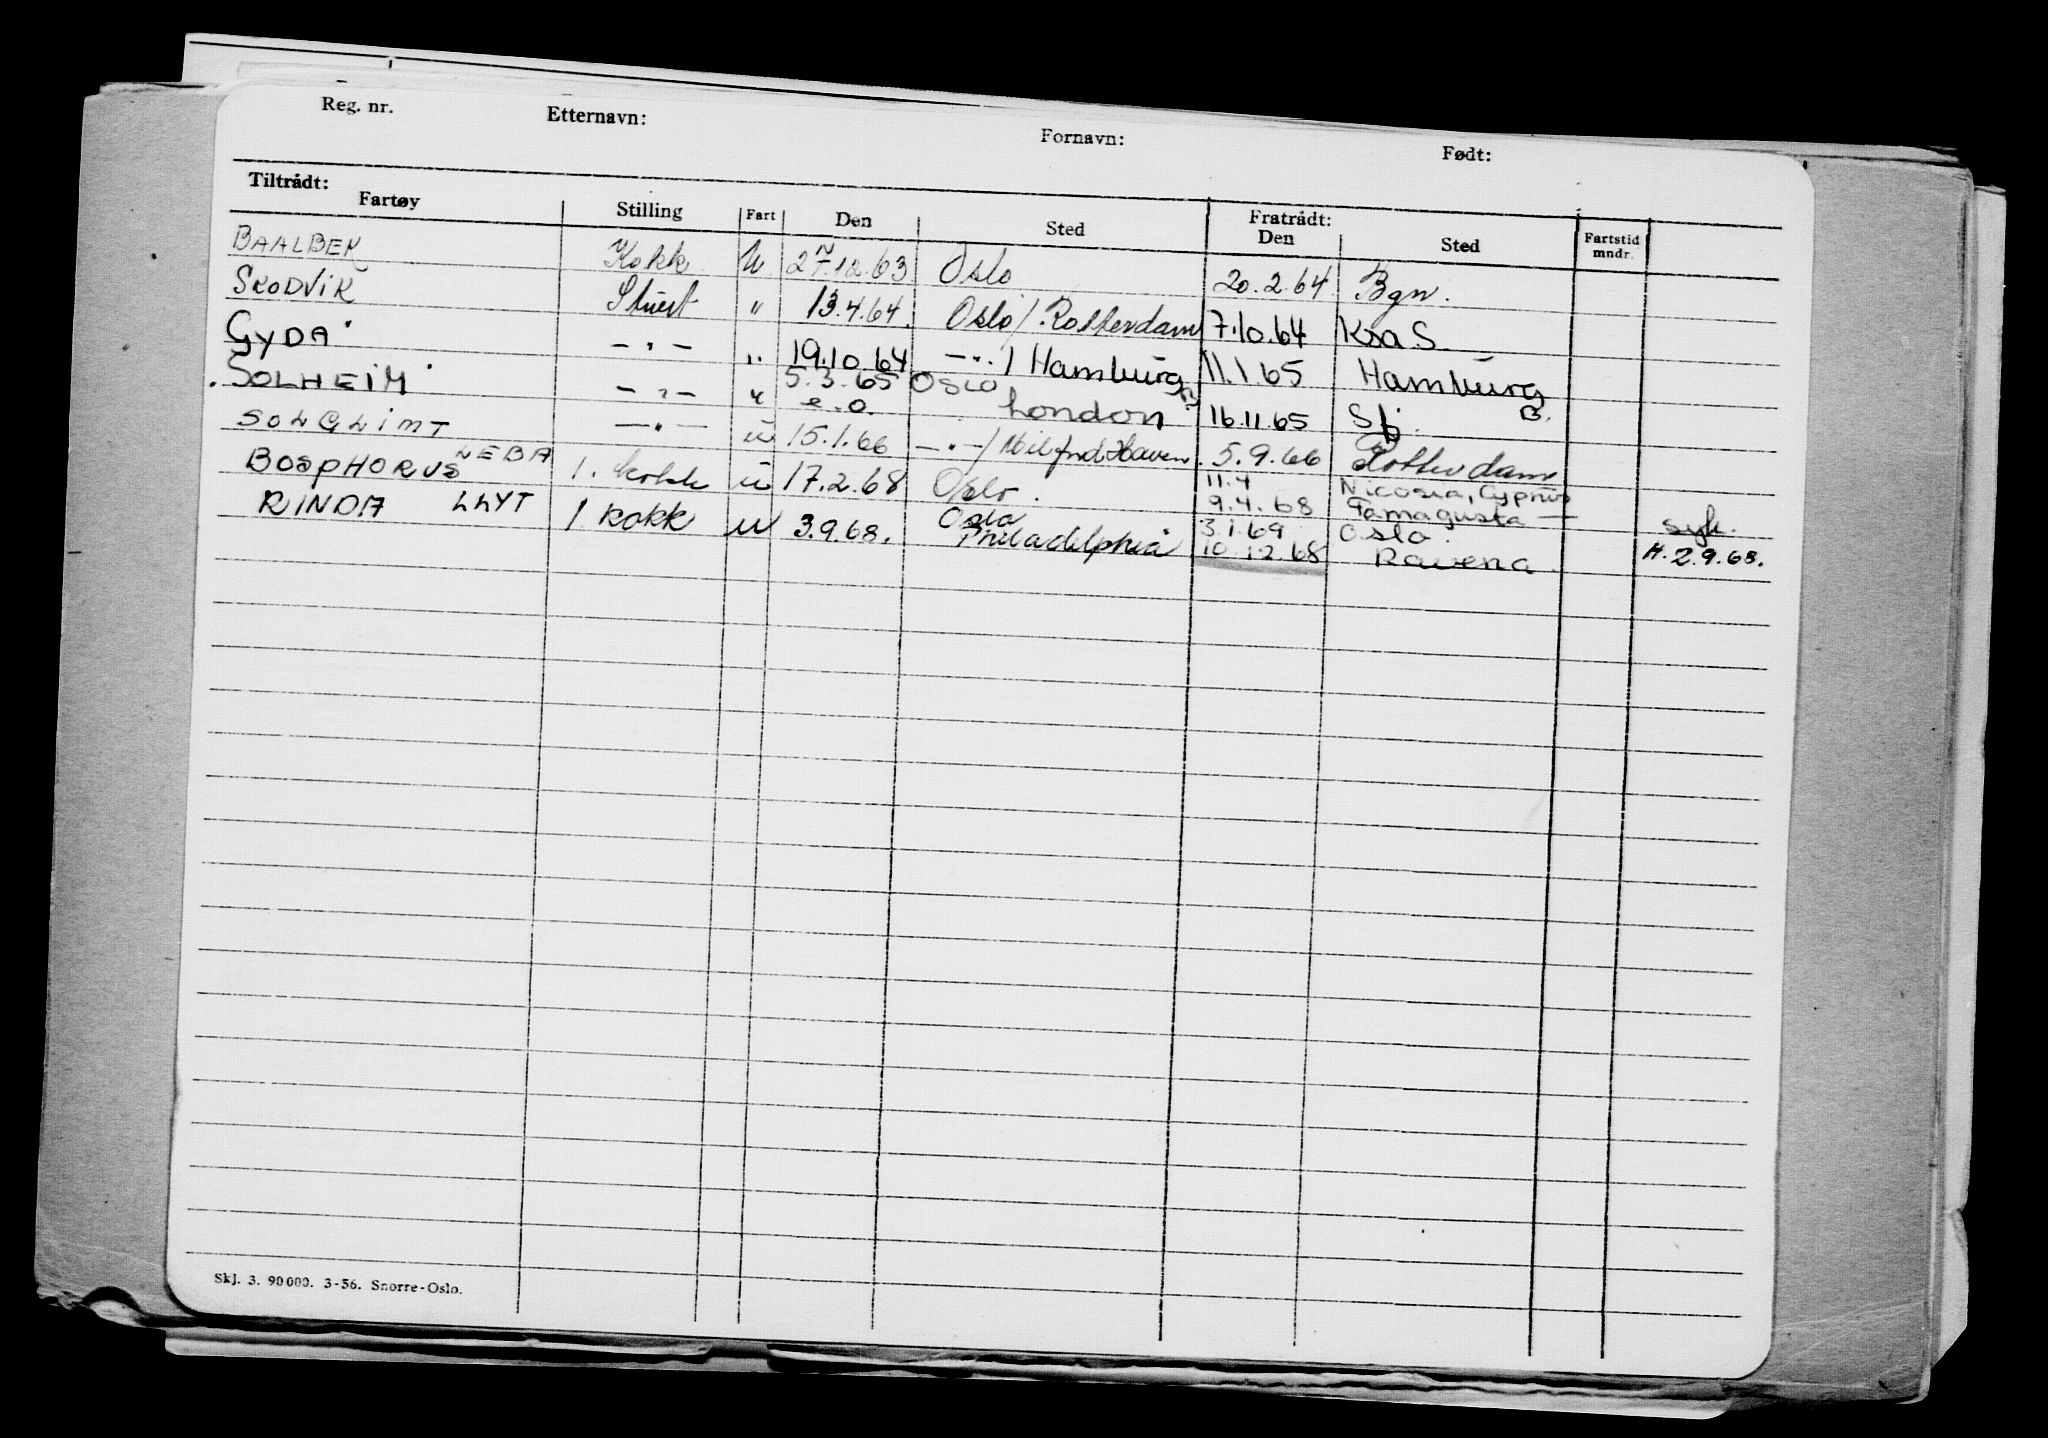 Reg. nr. Etternavn: Fornavn: Født:
Tiltrådt: Fratrådt:
Fartøy Stilling Fart Den Sted Den Sted Fartstid mndr.
BAALBEK Kokk U 27.12.63 Oslo 20.2.64 Bgn.
SKODVIK Stuert " 13.4.64. Oslo/Rotterdam 7.10.64 Krsa.S.
GYDA - " - " 19.10.64 - " -/ Hamburg 11.1.65 Hamburg
SOLHEIM - " - " 5.3.65 Oslo
e.o. London 16.11.65 Sfj. B.
SOLGLIMT - " - u 15.1.66 - " -/ Milford Haven. 5.9.66 Rotterdam
BOSPHORUS LEBA 1. kokk u 17.2.68 Oslo. 11.4 Nicosia, Cyprus
9.4.68 Famagusta — syk.
RINDA LLYT 1 kokk u 3.9.68. Oslo 3.1.69 Oslo.
Philadelphia 10.12.68 Ravena H. 2.9.68.
Skj. 3. 90000. 3-56. Snorre-Oslo.